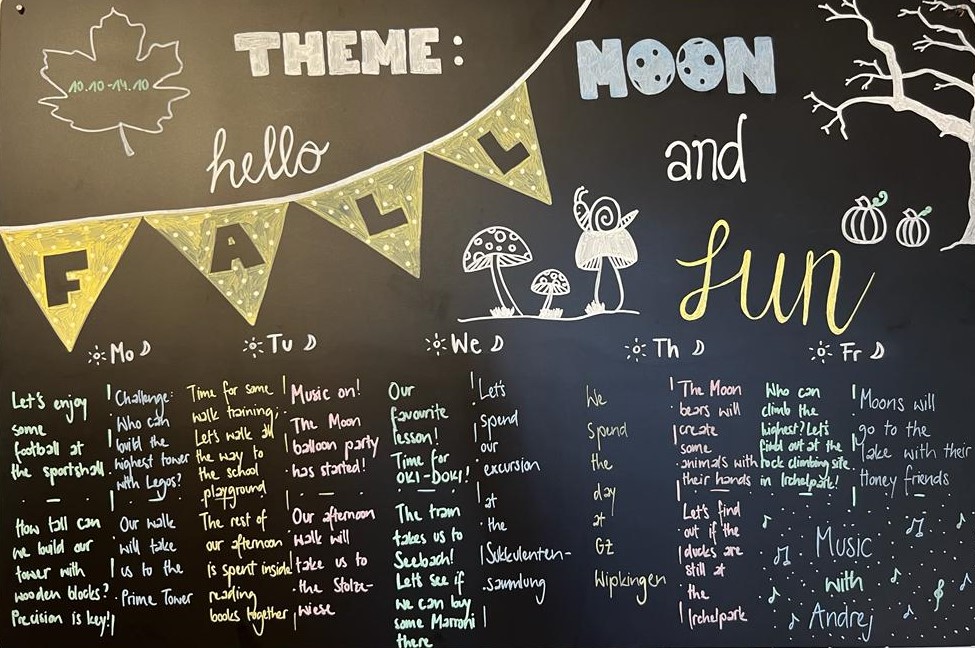 10.10-14.10
THEME:
MOON
hello
and
FALL
fun
Mo
Let's enjoy
some
football at
the sportshall
How tall can
we build our
tower with
wooden blocks?
Precision is key!
Challenge:
Who can
build the
highest tower
with Legos?
Our walk
will take
us to the
Prime Tower
Tu
Time for some
walk training;
Let's walk all
the way to
the school
playground
The rest of
our afternoon
is spent inside
reading
books together
Music on!
The Moon
balloon party
has started!
Our afternoon
walk will
take us to
the Stolze-
wiese
We
Our
favourite
lesson!
Time for
OKI-DOKI!
The tram
takes us to
Seebach!
Let's see if
we can buy
some Marroni
there
Let's
spend
our
excursion
at
the
Sukkulenten-
samlung
Th
We
Spend
the
day
at
GZ
Wipkingen
The Moon
bears will
create
some
animals with
their hands
Let's find
out if the
ducks are
still at
the
Irchelpark
Fr
Who can
climb the
highest? Let's
find out at the
rock climbing site
in Irchelpark!
Moons will
go to the
lake with their
Honey friends
Music
with
Andrej